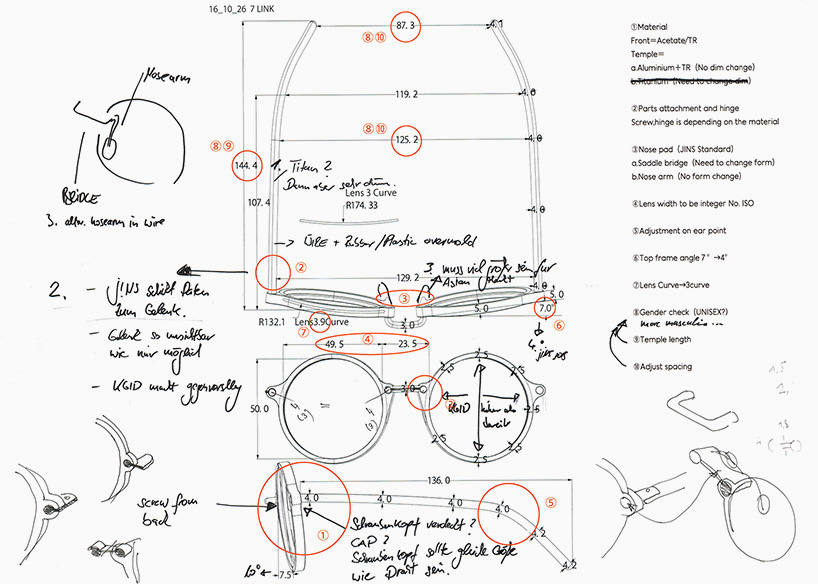 16_10_26 7 LINK
87.3
4.1
⑧⑩
119.2
4.0
⑧⑩
125.2
4.0
⑧⑨
144.4
107.4
1. Titan ?
Dann aber sehr dünn.
Lens 3 Curve
R174.33
4.0
→ WIRE + Rubber/Plastic overmold
②
129.2
4.0
3. muss viel größer sein für
Asian
③
5.0
5.0
7.0
⑥
R132.1
Lens3.9Curve
⑦
3.0
④
49.5
23.5
4. jins
2.5
2.5
50.0
3.0
②
KGID
höher als
breit
2.5
2.5
2.5
2.5
136.0
4.0
4.0
4.0
4.0
⑤
4.2
4.2
①
10°
7.5
Nosearm
BRIDGE
3. altern. nosearm in wire
2.
- JINS schickt Daten
zum Gelenk.
- Gelenk so unsichtbar
wie nur möglich
- KGID macht
screw from
back
Schraubenkopf verdeckt ?
CAP ?
Schraubenkopf sollte gleiche Größe
wie Draht sein.
①Material
Front=Acetate/TR
Temple=
a.Aluminium+TR (No dim change)
b.Titanium (Need to change dim)
②Parts attachment and hinge
Screw,hinge is depending on the material
③Nose pad (JINS Standard)
a.Saddle bridge (Need to change form)
b.Nose arm (No form change)
④Lens width to be integer No. ISO
⑤Adjustment on ear point
⑥Top frame angle 7° →4°
⑦Lens Curve→3curve
⑧Gender check (UNISEX?)
more masculin...
⑨Temple length
⑩Adjust spacing
1,5
2,